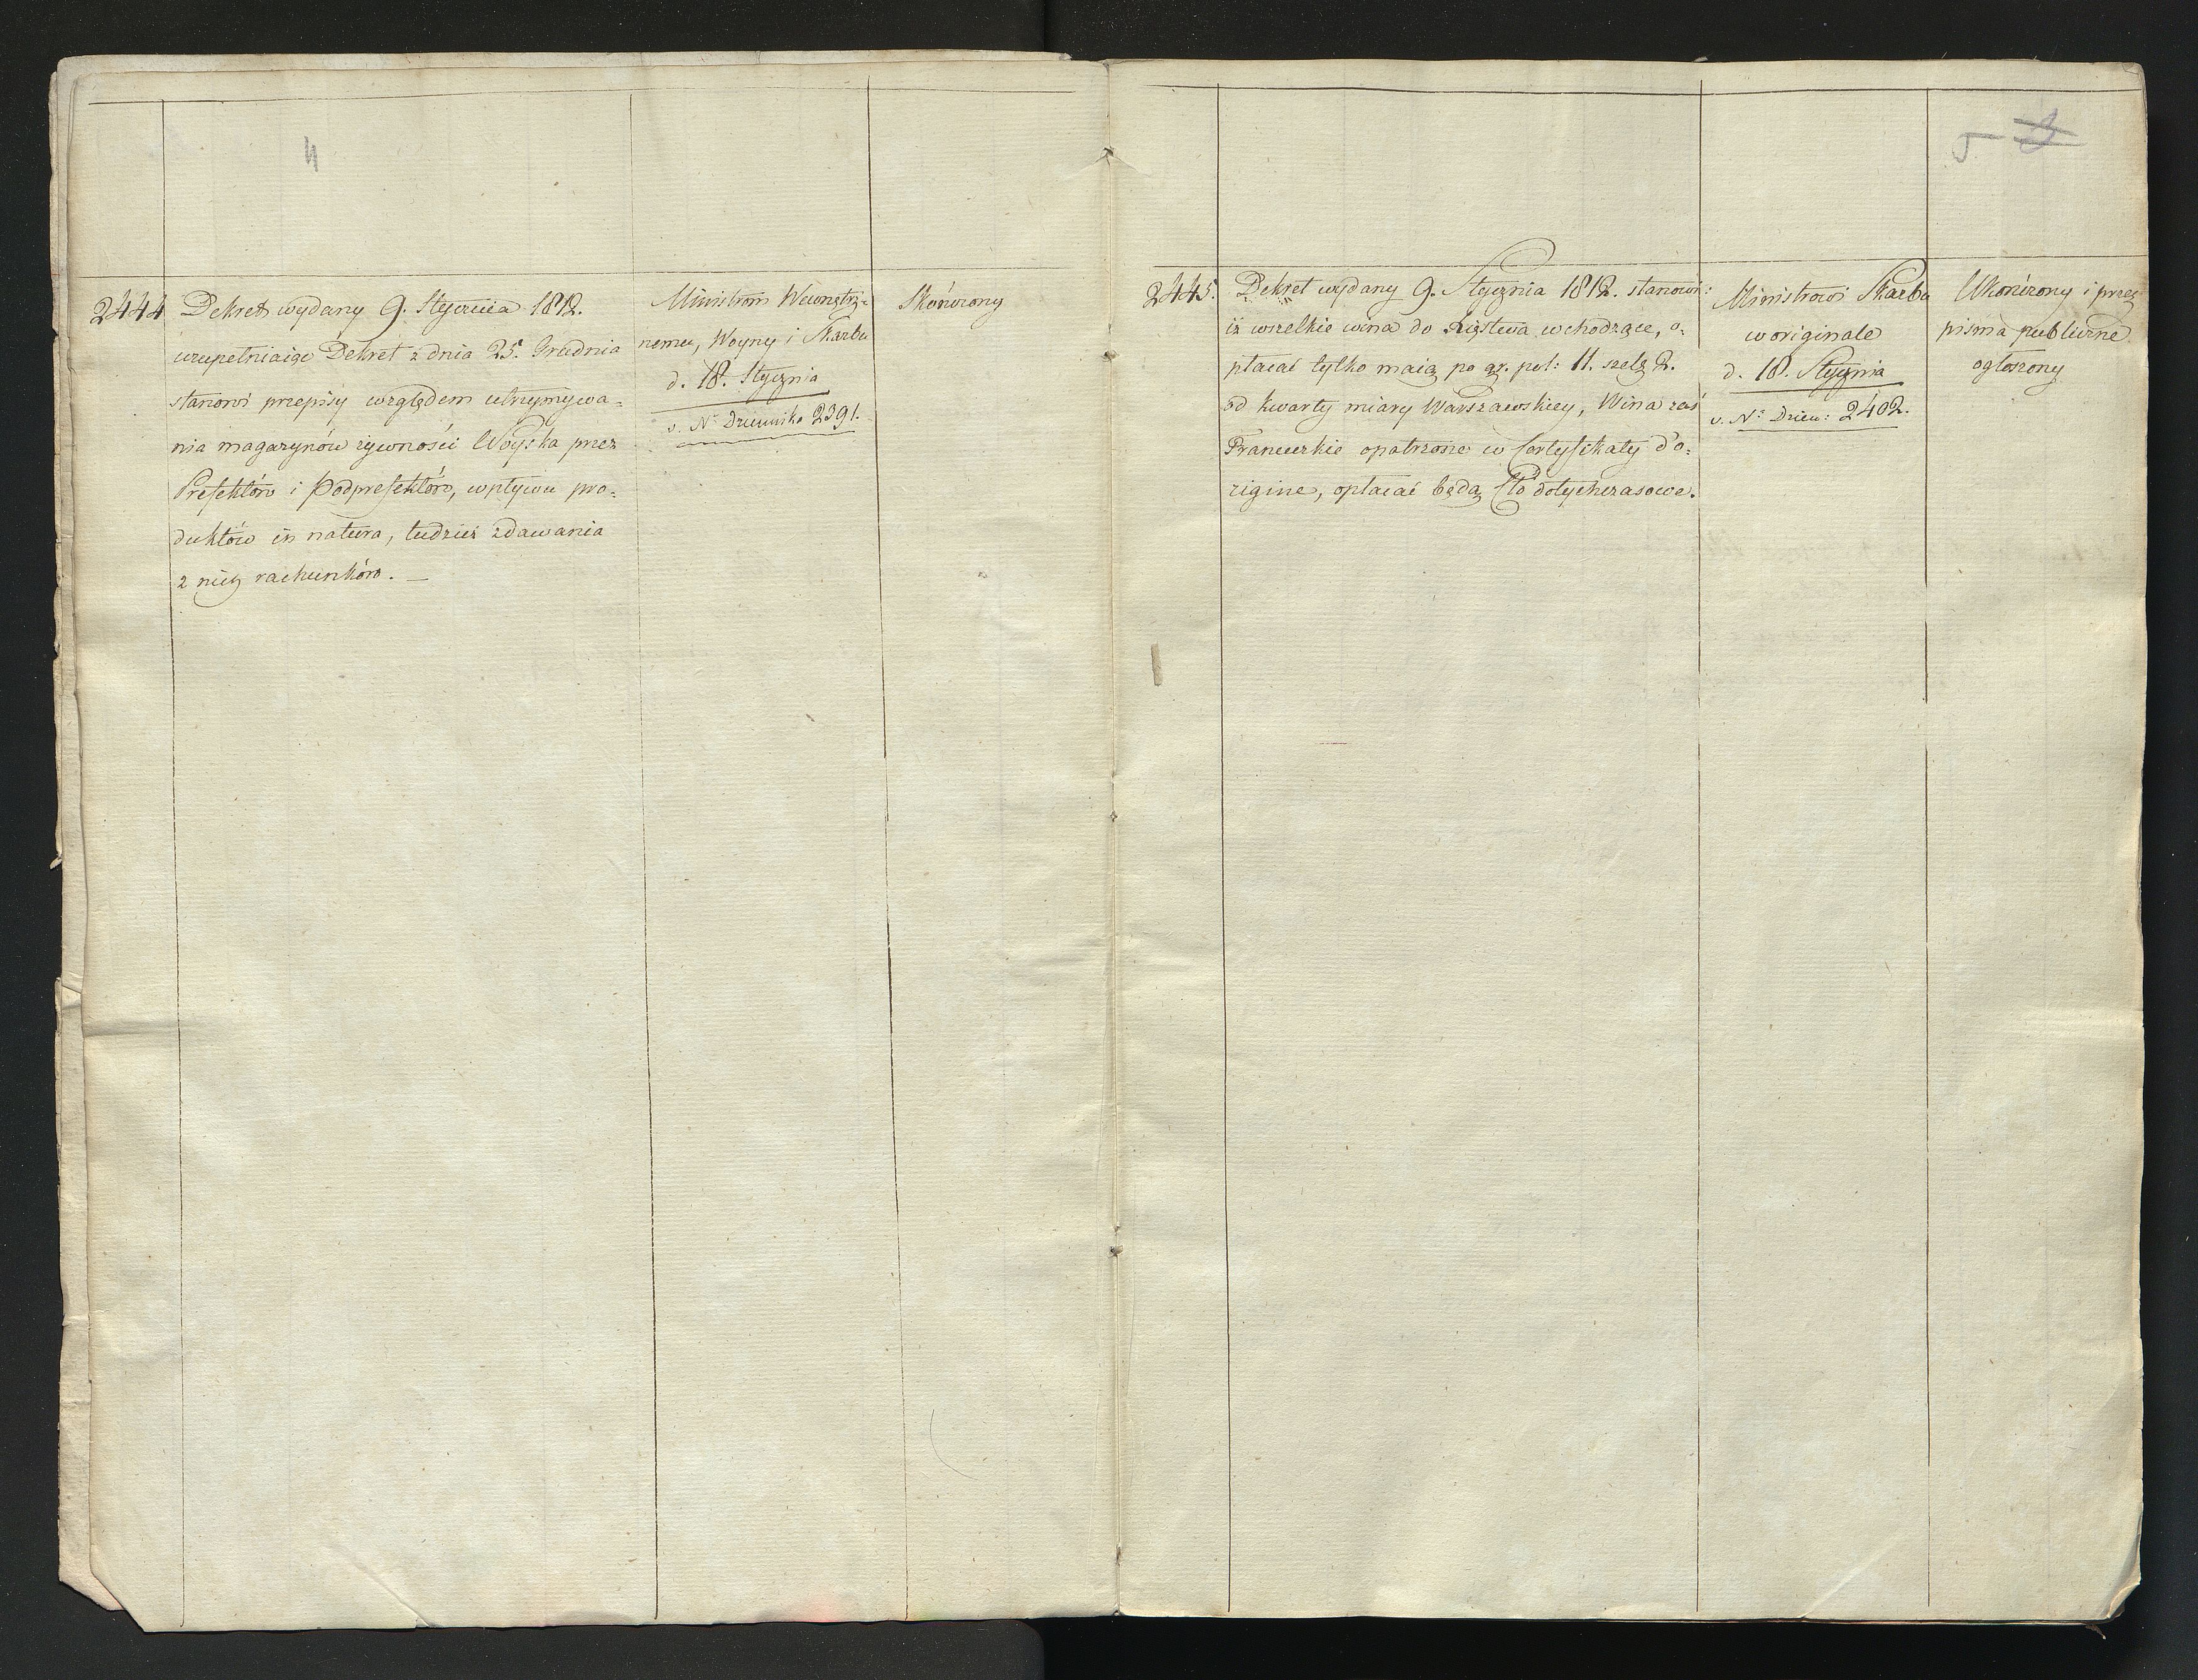 4
2444 Dekret wydany 9. Stycznia 1812.
uzupełniaiąc Dekret z dnia 25. Grudnia
stanowi przepisy względem utrzymywa=
nia magazynów żywności Woyska przez
Prefektów i Podprefektów, wpływu pro=
duktów in natura, tudzież zdawania
z nich rachunków. —
Ministrom Wewnętrz=
nemu, Woyny i Skarbu
d. 18. Stycznia
v. Nr Dziennika 2391.
Skończony
5 3
2445. Dekret wydany 9. Stycznia 1812. stanowi:
iż wszelkie wina do Xięstwa wchodzące, o=
płacać tylko maią po gr. pol: 11. szelg 2.
od kwarty miary Warszawskiey, Wina zaś
Francuzkie opatrzone w Certyfikaty d'o=
rigine, opłacać będą Cło dotychczasowe.
Ministrowi Skarbu
w originale
d. 18. Stycznia
v. Nr Dzien: 2402.
Ukończony i przez
pisma publiczne
ogłoszony